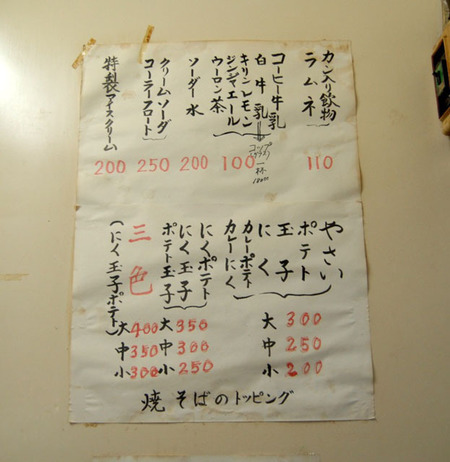 カン入り飲物
ラムネ
110
コーヒー牛乳
白牛乳
コップ
一杯
キリンレモン
ジンジャエール
ウーロン茶
100
ソーダ水
200
クリームソーダ
コーラーフロート
250
特製アイスクリーム
200
やさい
ポテト
玉子
にく
カレーポテト
カレーにく
大300
中250
小200
にくポテト
にく玉子
ポテト玉子
大350
中300
小250
三色
(にく玉子ポテト)
大400
中350
小300
焼そばのトッピング